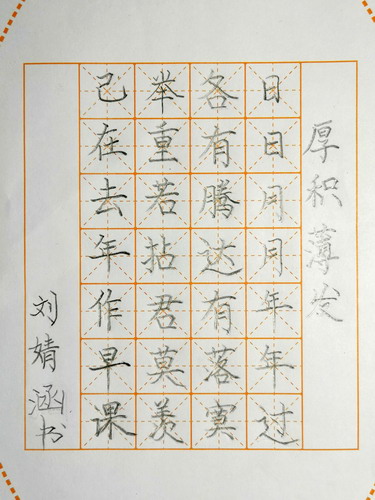 厚积薄发
日日月月年年过
各有腾达有落寞
举重若拈君莫羡
己在去年作早课
刘婧涵书